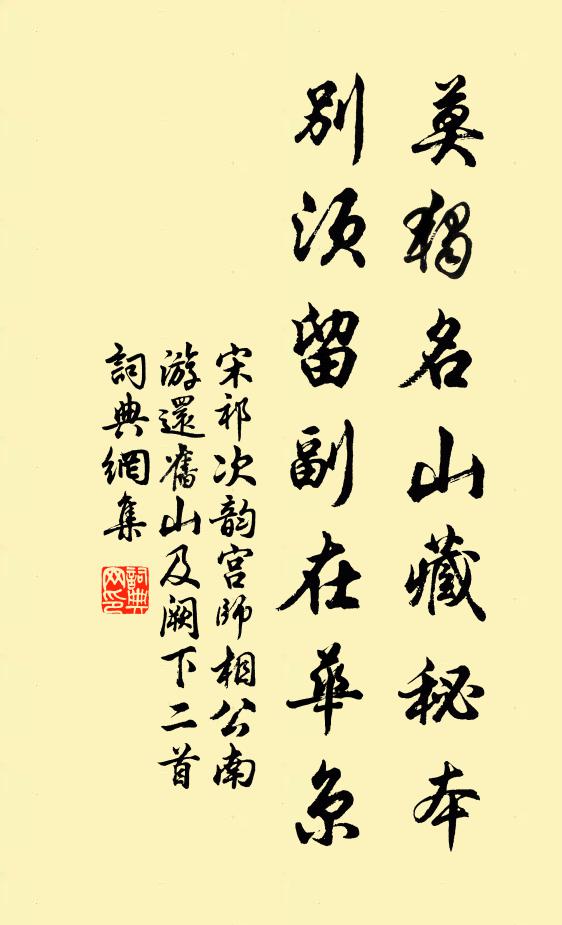 莫獨名山藏秘本
別須留副在華京
宋祁次韵宫師相公南
游還舊山及阙下二首
詞典網集
詞典網印